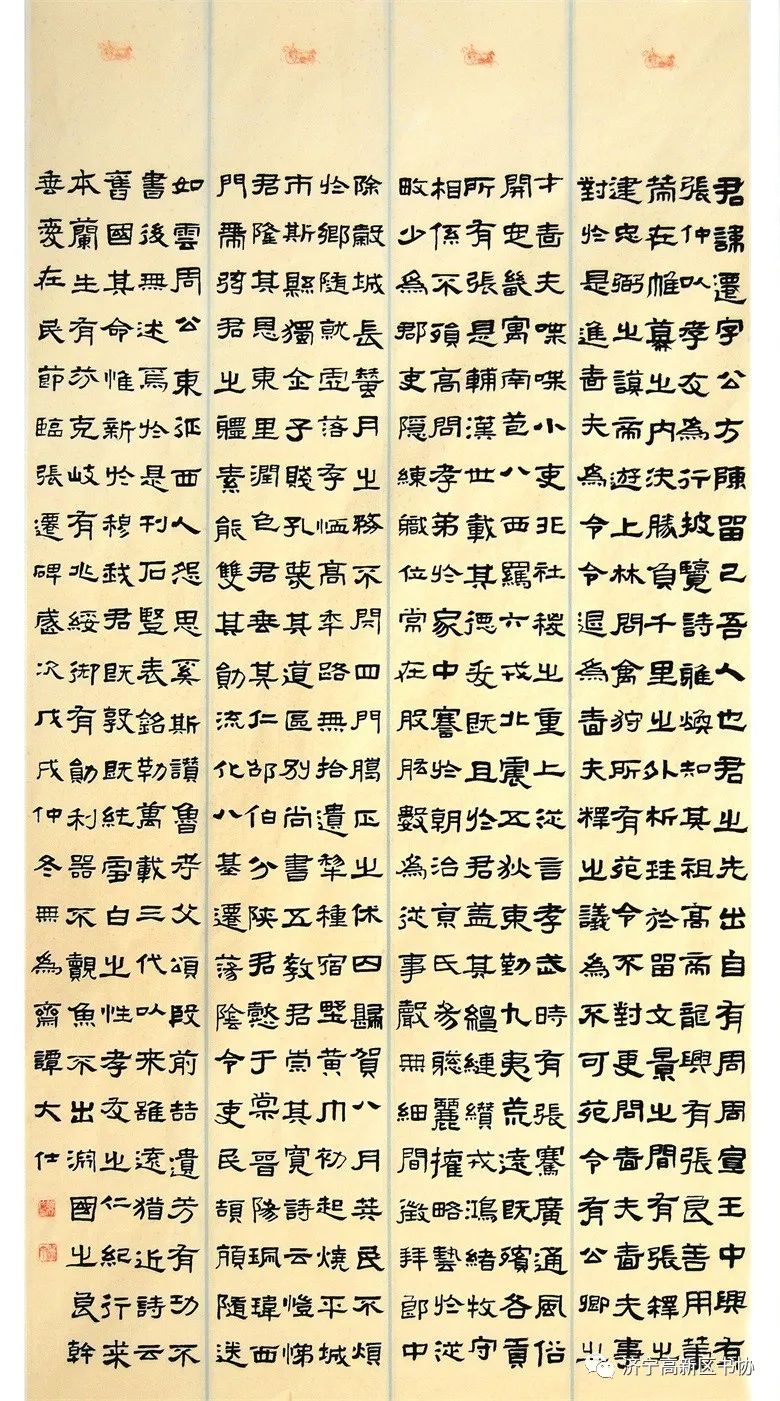 君諱遷字公方陳留己吾人也君之先出自有周周宣王中興有
張仲以孝友為行披覽詩雅煥知其祖高帝龍興有張良善用籌
策在帷幕之內決勝負千里之外析珪於留文景之間有張釋之
建忠弼之謨帝遊上林問禽狩所有苑令不對更問嗇夫嗇夫事
對於是進嗇夫為令令退為嗇夫釋之議為不可苑令有公卿之
才嗇夫喋喋小吏非社稷之重上從言孝武時有張騫廣通風俗
開定畿寓南苞八西羈六戎北震五狄東勤九夷荒遠既殯各貢
所有張是輔漢世載其德爰既且於君蓋其繵縺纘戎鴻緒牧守
相係不殞高問孝弟於家中謇於朝治京氏易聰麗權略藝於從
畋少為郡吏隱練職位常在股肱數為從事聲無細聞徵拜郎中
除穀城長蠶月之務不閉四門臘正之休囚歸賀八月筭民不煩
於鄉隨就虛落存恤高年路無拾遺犁種宿野黃巾初起燒平城
市斯縣獨全子賤孔蔑其道區別尚書五教君崇其寬詩云愷悌
君隆其恩東里潤色君垂其仁邵伯分陝君懿于棠晉陽珮瑋西
門帶弦君之體素能雙其勛流化八基遷蕩陰令吏民頡頏隨送
如雲周公東征西人怨思奚斯讚魯考父頌殷前喆遺芳有功不
書後無述焉於是刊石豎表銘勒萬載三代以來雖遠猶近詩云
舊國其命惟新於穆我君既敦既純雪白之性孝友之仁紀行來
本蘭生有芬克岐有兆綏御有勛利器不覿魚不出淵國之良幹
垂愛在民節臨張遷碑歲次戊戌仲冬無為齋譚大仕
济宁高新区书协